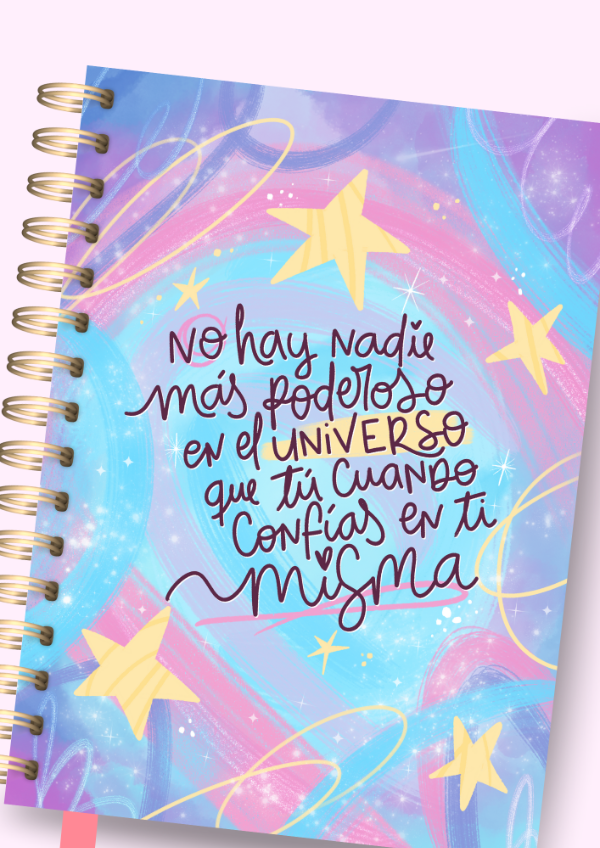 No hay nadie
más poderoso
en el UNIVERSO
que tú cuando
confías en ti
misma